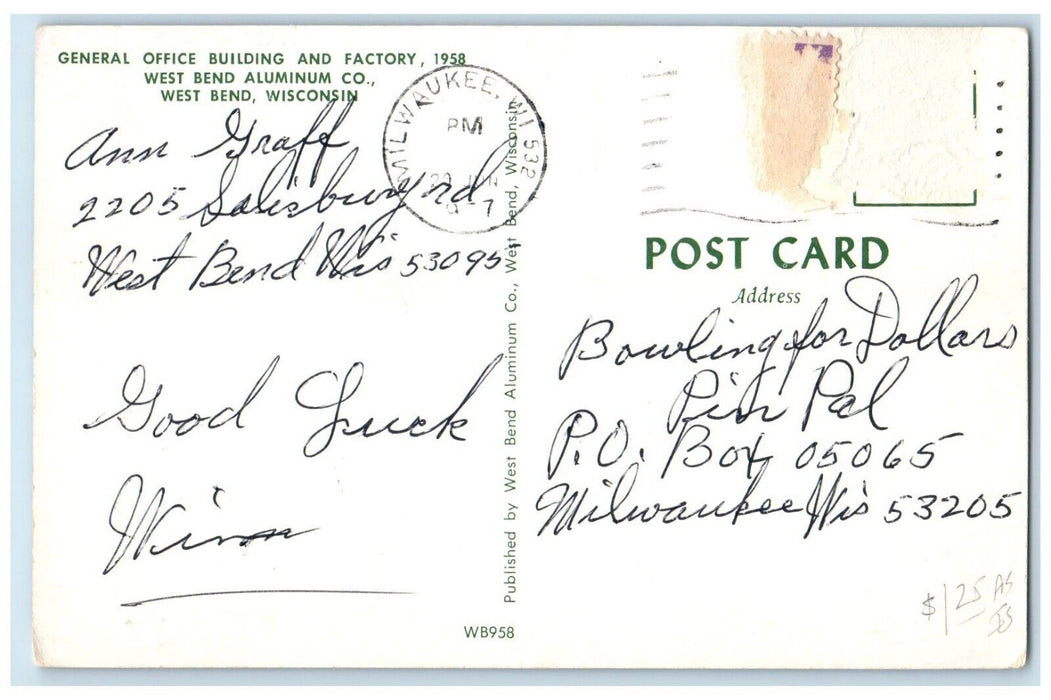 GENERAL OFFICE BUILDING AND FACTORY, 1958
WEST BEND ALUMINUM CO.,
WEST BEND, WISCONSIN
Ann Graff
2205 Salisbury rd
West Bend Wis 53095
Good Luck
Winn
MILWAUKEE, WI 532
PM
29 JUN
Published by West Bend Aluminum Co., West Bend, Wisconsin
WB958
POST CARD
Address
Bowling for Dollars
Pin Pal
P.O. Box 05065
Milwaukee Wis 53205
$1.25 AS
IS